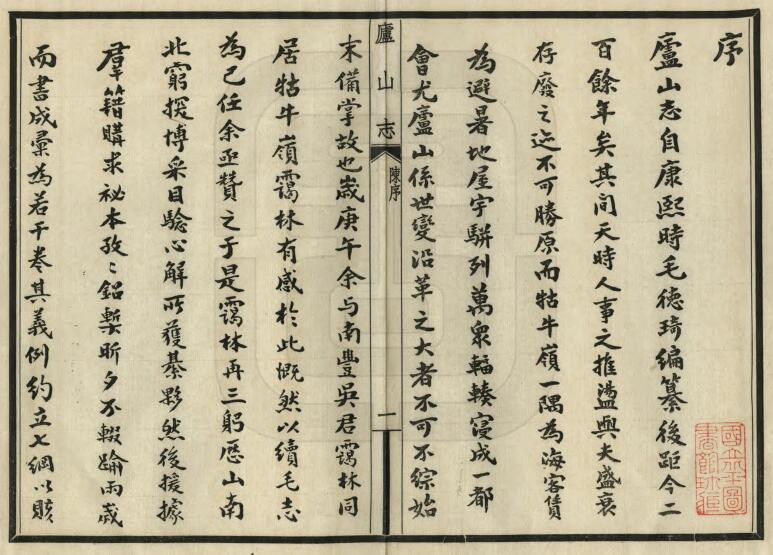 序
廬山志自康熙時毛德琦編纂後距今二
百餘年矣其间天時人事之推盪與夫盛衰
存廢之迹不可勝原而牯牛嶺一隅為海客賃
為避暑地屋宇駢列萬衆輻輳寖成一都
會尤廬山係世變沿革之大者不可不綜始
廬山志
陳序
一
末備掌故也歲庚午余与南豐吳君靄林同
居牯牛嶺靄林有感於此慨然以續毛志
為己任余亟贊之于是靄林再三躬歷山南
北窮探博采目驗心解所獲綦夥然後援據
羣籍購求祕本孜〻鉛槧昕夕不輟踰兩歲
而書成彙為若干卷其義例約立七綱以賅